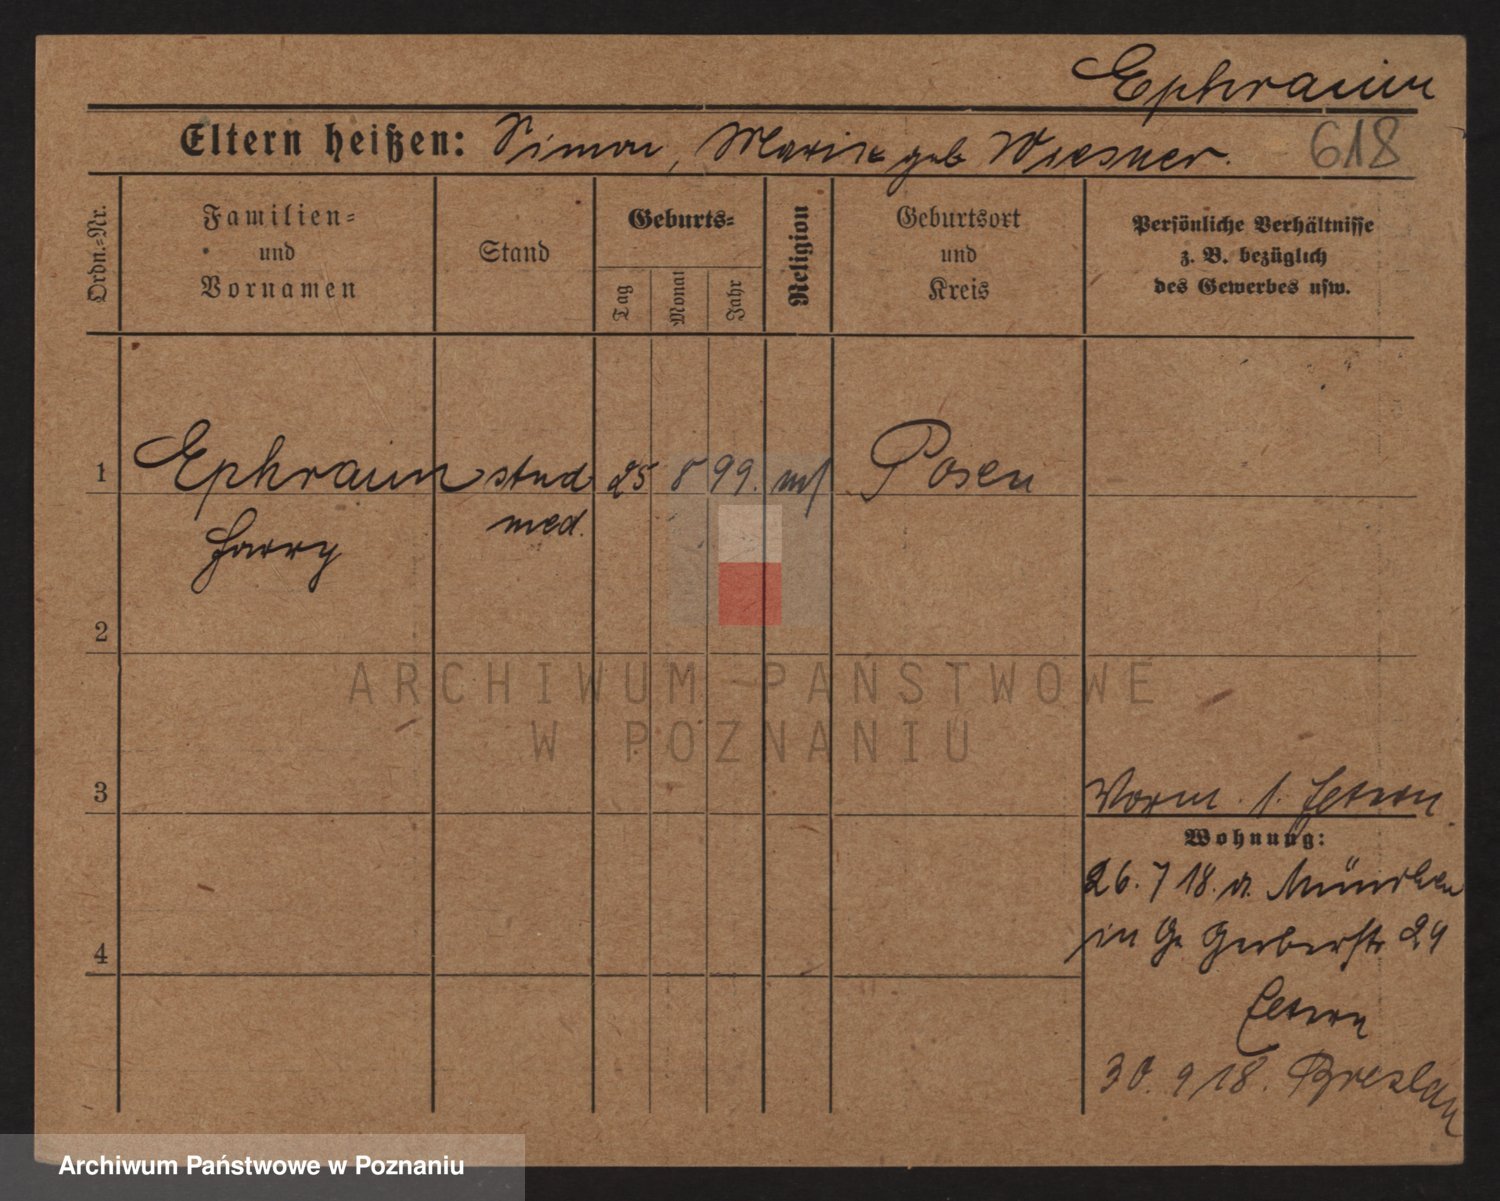 Ephraim
Eltern heißen: Simon, Marie geb Wiesner.
618
Ordn.-Nr.
Familien-
und
Vornamen
Stand
Geburts-
Tag
Monat
Jahr
Religion
Geburtsort
und
Kreis
Persönliche Verhältnisse
z. B. bezüglich
des Gewerbes usw.
1 Ephraim stud 25 8 99. mos Posen
Harry med.
2
ARCHIWUM PAŃSTWOWE
W POZNANIU
3
Vorm. s. Eltern
Wohnung:
26. 7 18. v. München
in Gr Gerberstr 29
4
Eltern
30. 9 18. Breslau
Archiwum Państwowe w Poznaniu